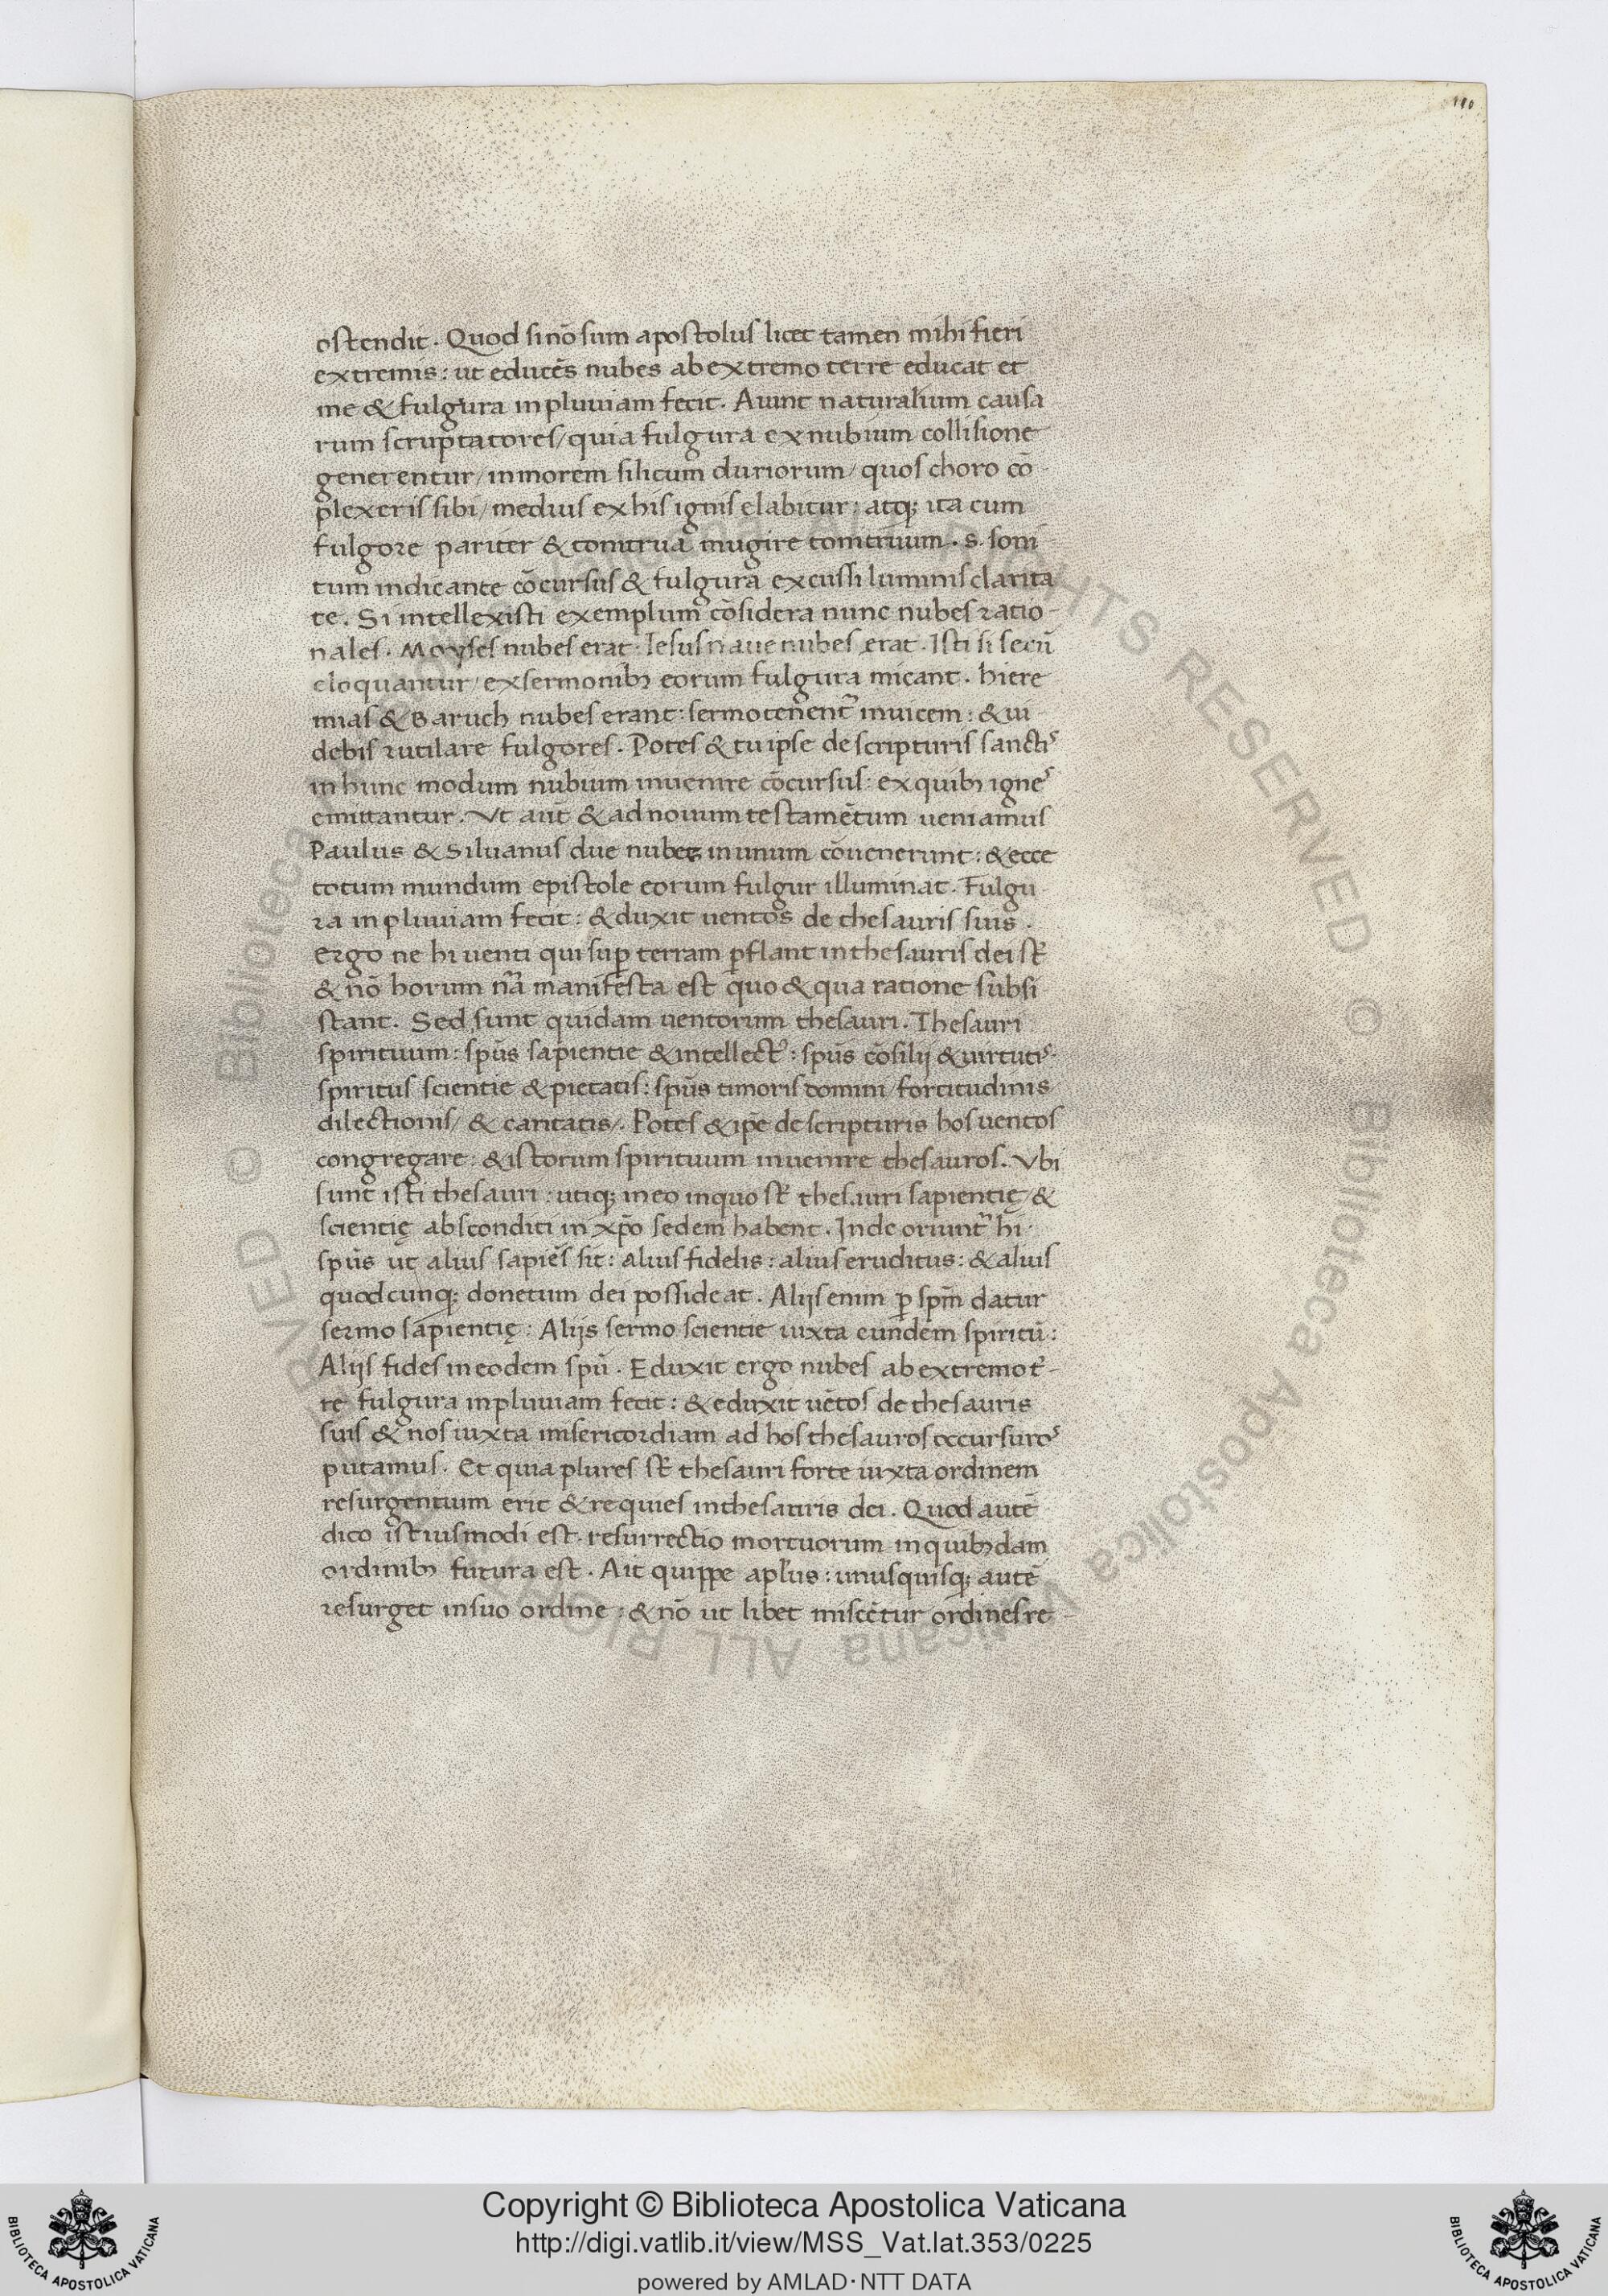 110
ostendit. Quod si nō sum apostolus licet tamen mihi fieri
extremis: ut educēs nubes ab extremo terre educat et
me & fulgura in pluuiam fecit. Aiunt naturalium causa
rum scruptatores/ quia fulgura ex nubium collisione
generentur/ in morem silicum duriorum/ quos choro cō
plexeris sibi/ medius ex his ignis elabitur: atq; ita cum
fulgore pariter & tonitrua mugire tonitruum. s. soni
tum indicante cōcursus & fulgura excussi luminis clarita
te. Si intellexisti exemplum cōsidera nunc nubes ratio-
nales. Moyses nubes erat: Iesus naue nubes erat. Isti si secū
eloquantur/ ex sermonibꝫ eorum fulgura micant. hiere
mias & Baruch nubes erant: sermocenent᷑ inuicem: & ui-
debis rutilare fulgores. Potes & tu ipse de scripturis sanctis
in hunc modum nubium inuenire cōcursus: ex quibꝫ ignes
emittantur. Vt aūt & ad nouum testamētum ueniamus
Paulus & Siluanus due nubes in unum cōuenerunt: & ecce
totum mundum epistole eorum fulgur illuminat. Fulgu
ra in pluuiam fecit: & duxit uentos de thesauris suis.
Ergo ne hi uenti qui suꝑ terram ꝑflant in thesauris dei st̄
& nō horum nr̄a manifesta est quo & qua ratione subsi
stant. Sed sunt quidam uentorum thesauri. Thesauri
spirituum: spūs sapientie & intellectꝰ: spūs cōsilij & uirtutis.
spiritus scientie & pietatis: spūs timoris domini/ fortitudinis
dilectionis/ & caritatis/. Potes & ip̄e de scripturis hos uentos
congregare: & istorum spirituum inuenire thesauros. Vbi
sunt isti thesauri: utiq; in eo in quo st̄ thesauri sapientię/ &
scientię absconditi in xp̄o sedem habent. Inde oriunt᷑ hi
spūs ut alius sapiēs sit: alius fidelis: alius eruditus: & alius
quodcunq; donetum dei possideat. Alijs enim ꝑ spm̄ datur
sermo sapientię: Alijs sermo scientie iuxta eundem spiritū:
Alijs fides in eodem spū. Eduxit ergo nubes ab extremo t᷑-
re fulgura in pluuiam fecit: & eduxit uētos de thesauris
suis & nos iuxta misericordiam ad hos thesauros occursuros
putamus. Et quia plures st̄ thesauri forte iuxta ordinem
resurgentium erit & requies in thesauris dei. Quod autē
dico istiusmodi est. resurrectio mortuorum in quibꝫdam
ordinibꝫ futura est. Ait quippe apl̄us: unusquisq; autē
resurget in suo ordine: & nō ut libet miscētur ordines re-
Copyright © Biblioteca Apostolica Vaticana
http://digi.vatlib.it/view/MSS_Vat.lat.353/0225
powered by AMLAD·NTT DATA
BIBLIOTECA APOSTOLICA VATICANA
BIBLIOTECA APOSTOLICA VATICANA